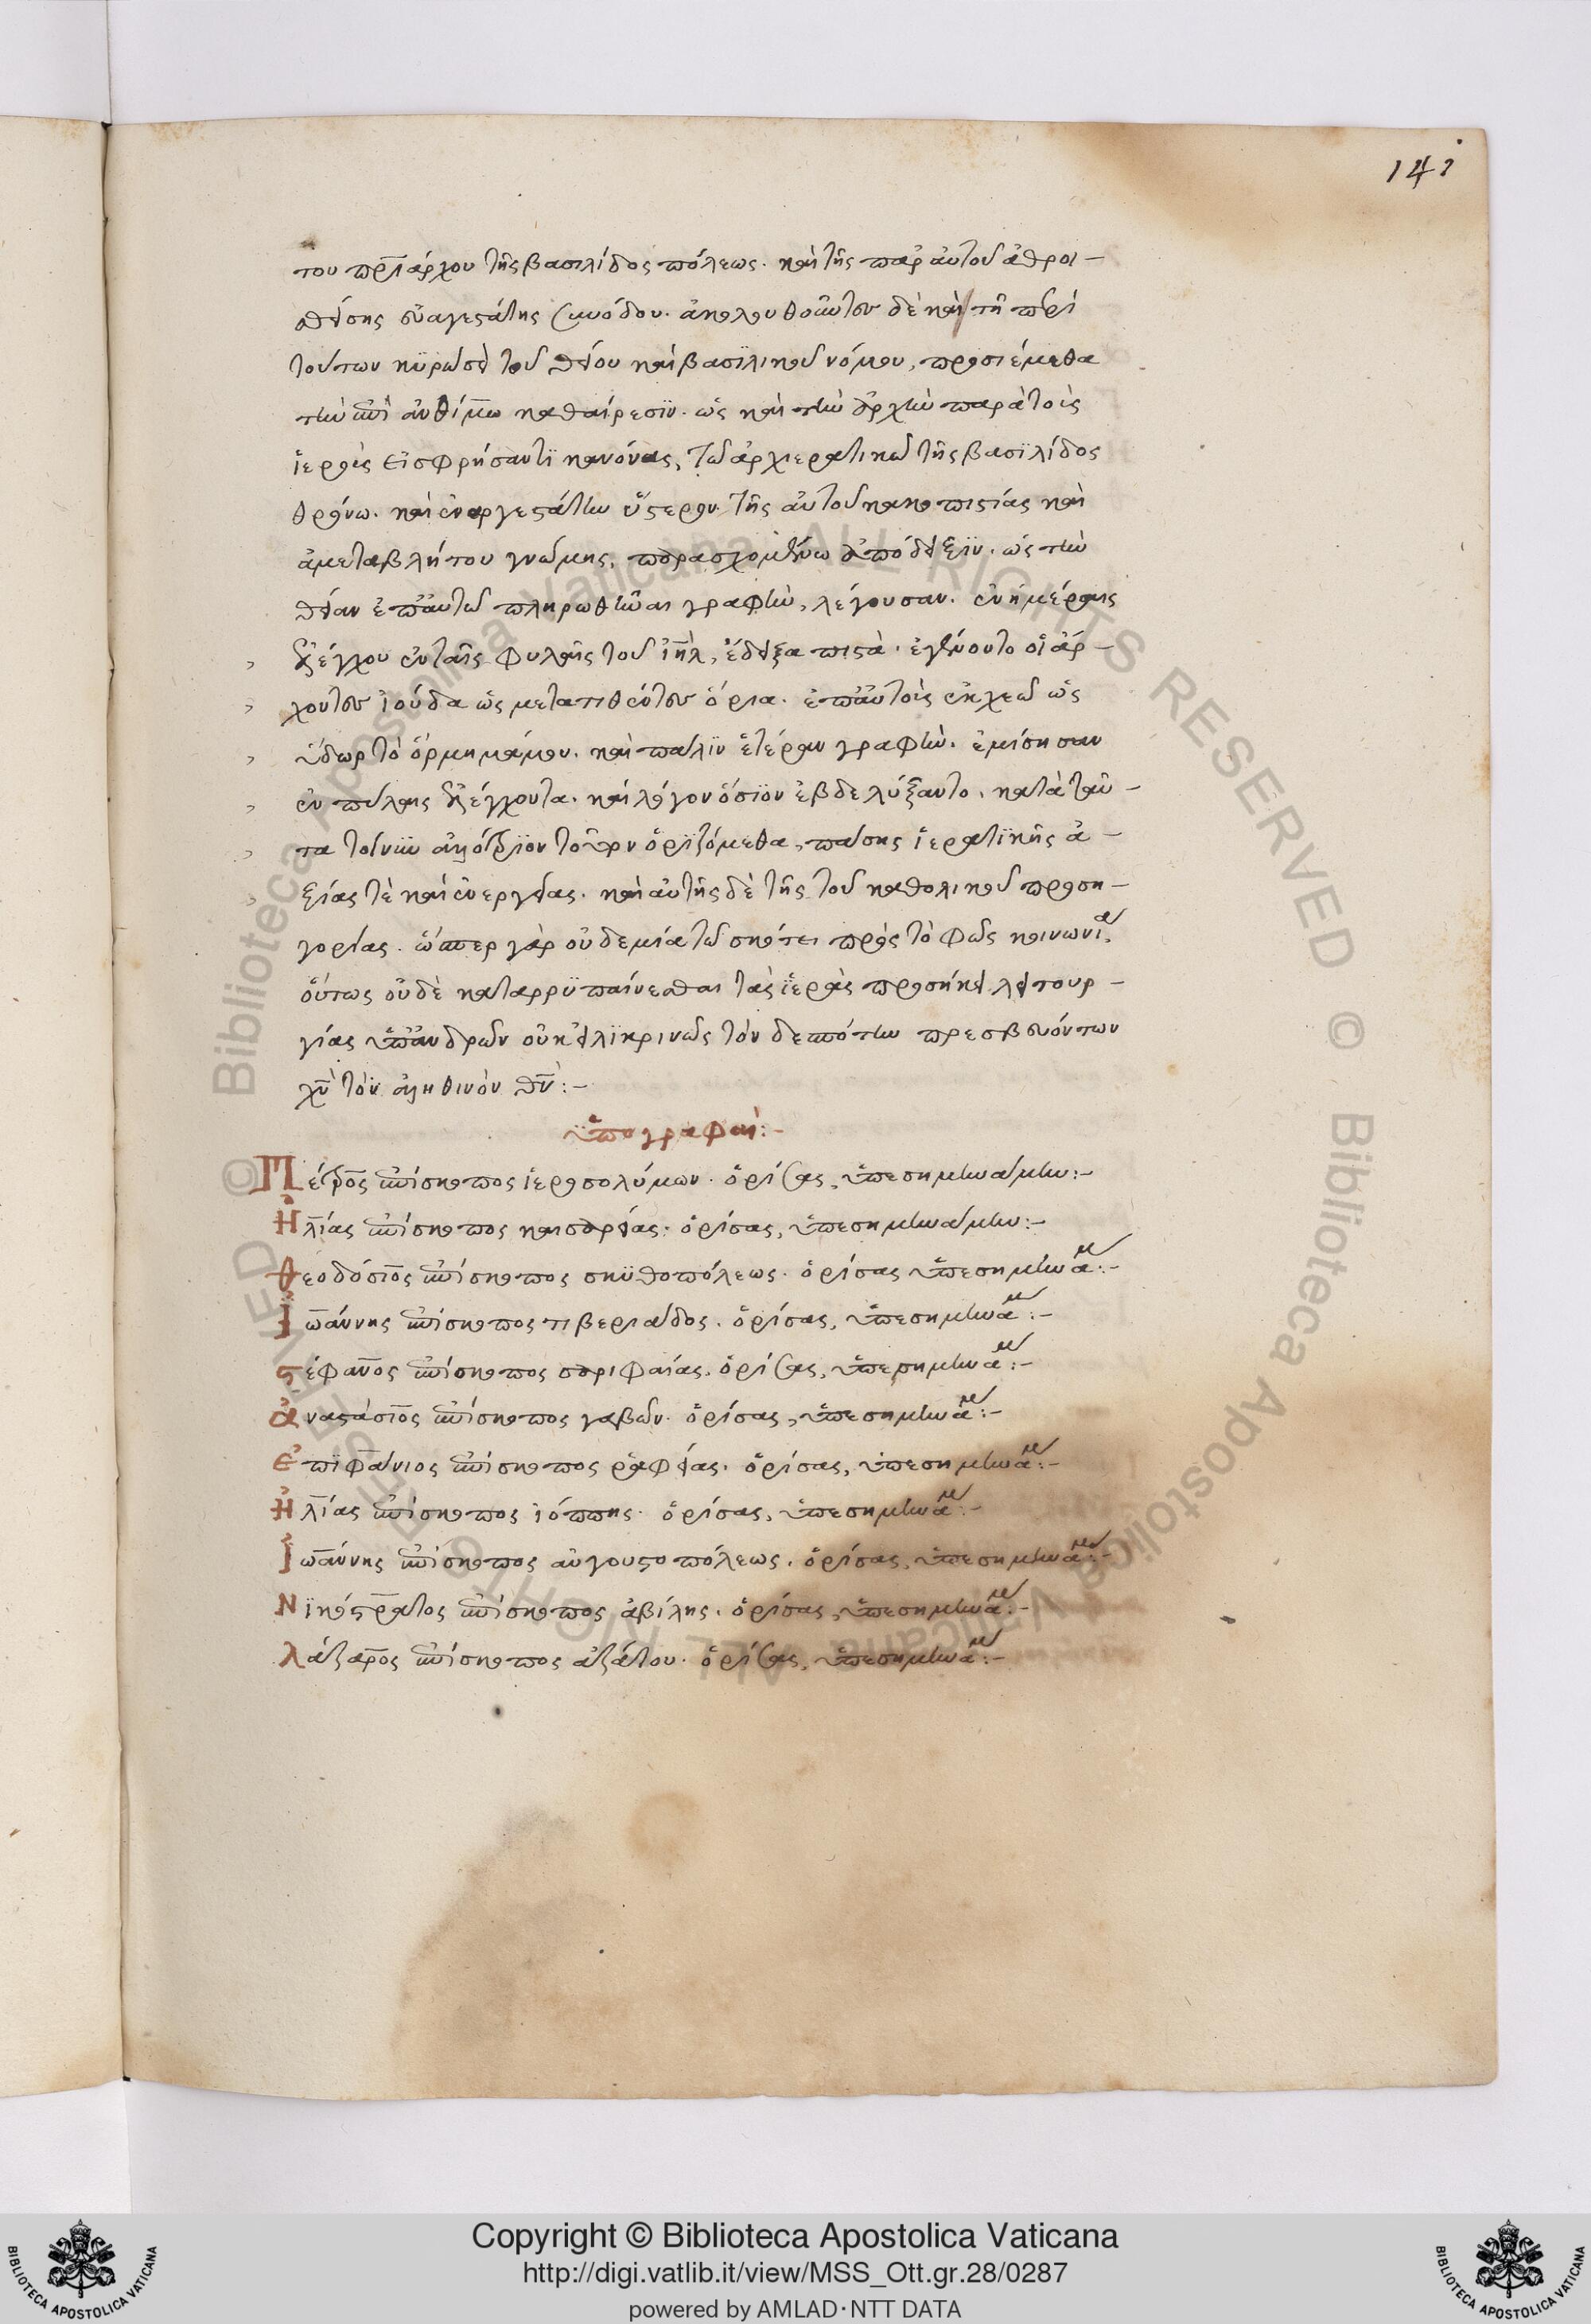 141
του πρ̅ιάρχου τῆς βασιλίδος πόλεως. καὶ τῆς παρ' αὐτοῦ ἀθροι–
σθείσης εὐαγεστάτης συνόδου. ἀκολουθοῦντες δὲ καὶ τῇ περὶ
τούτων κϋρώσει τοῦ θείου καὶ βασϊλικοῦ νόμου, προσιέμεθα
τὴν ἐπὶ ἀνθίμω καθαίρεσϊν. ὡς καὶ τὴν ἀρχὴν παρὰ τοὺς
ἱεροὺς εἰσφρήσαντϊ κανόνας, τῶ ἀρχιερατικῶ τῆς βασϊλίδος
θρόνω. καὶ ἐναργεστάτην ὕστερον τῆς αὐτοῦ κακοπιστίας καὶ
ἀμεταβλήτου γνώμης, παρασχομένω ἀπόδειξϊν. ὡς τὴν
θείαν ἐπ' αὐτῶ πληρωθῆναι γραφὴν, λέγουσαν. ἐν ἡμέραις
ἐλέγχου ἐν ταῖς φυλαῖς τοῦ ἰη̅λ, ἔδειξα πιστὰ. ἐγένοντο οἱ ἄρ–
χοντες ἰούδα ὡς μετατιθέντες ὅρια. ἐπ' αὐτοὺς ἐκχεῶ ὡς
ὕδωρ τὸ ὅρμημά μου. καὶ παλϊν ἑτέραν γραφὴν. ἐμίσησαν
ἐν πύλαις ἐλέγχοντα. καὶ λόγον ὅσϊον ἐβδελύξαντο. κατὰ ταῦ–
τα τοίνυν ἀλλότρϊον τοῦτον ὁρϊζόμεθα, πάσης ἱερατϊκῆς ἀ–
ξίας τὲ καὶ ἐνεργείας. καὶ αὐτῆς δὲ τῆς τοῦ καθολικοῦ προση–
γορίας. ὥσπερ γὰρ οὐδεμία τῶ σκότει πρὸς τὸ φῶς κοινωνία,
οὕτως οὐδὲ καταρρϋπαίνεσθαι τὰς ἱερὰς προσήκει λειτουρ–
γίας ὑπ' ἀνδρῶν οὐκ εἰλϊκρινῶς τὸν δεσπότην πρεσβευόντων
χν̅ τὸν ἀληθινὸν θν̅:–
ὑπογραφαὶ:–
Πέτρος ἐπίσκοπος ἱεροσολύμων. ὁρίσας, ὑπεσημηνάμην:–
Ἠλίας ἐπίσκοπος καισαρείας. ὁρίσας, ὑπεσημηνάμην:–
Θεοδόσιος ἐπίσκοπος σκϋθοπόλεως. ὁρίσας ὑπεσημηνάμ:–
Ἰωάννης ἐπίσκοπος τιβεριάδος. ὁρίσας, ὑπεσημηνάμ:–
Στέφανος ἐπίσκοπος σαριφαίας. ὁρίσας, ὑπεσημηνάμ:–
Ἀναστάσιος ἐπίσκοπος γαβῶν. ὁρίσας, ὑπεσημηνάμ:–
Ἐπϊφάνιος ἐπίσκοπος ραφείας. ὁρίσας, ὑπεσημηνάμ:–
Ἠλίας ἐπίσκοπος ἰόππης. ὁρίσας, ὑπεσημηνάμ:–
Ἰωάννης ἐπίσκοπος αὐγουστοπόλεως. ὁρίσας, ὑπεσημηνάμ:–
Νϊκόστρατος ἐπίσκοπος ἀβίλης. ὁρίσας, ὑπεσημηνάμ:–
Λάζαρος ἐπίσκοπος ἀζώτου. ὁρίσας, ὑπεσημηνάμ:–
© Biblioteca Apostolica Vaticana ALL RIGHTS RESERVED © Biblioteca Apostolica Vaticana ALL RIGHTS RESERVED
Copyright © Biblioteca Apostolica Vaticana
http://digi.vatlib.it/view/MSS_Ott.gr.28/0287
powered by AMLAD·NTT DATA
BIBLIOTECA APOSTOLICA VATICANA
BIBLIOTECA APOSTOLICA VATICANA